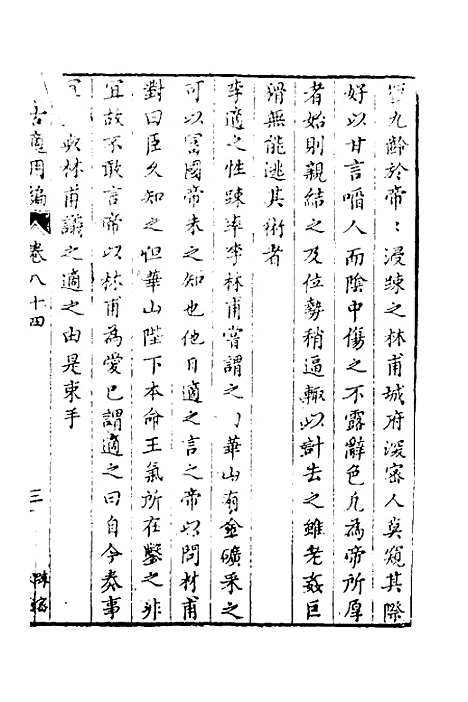 九齡於帝〻浸踈之林甫城府深審人莫窺其際
好以甘言啗人而陰中傷之不露辭色凡為帝所厚
者始則親結之及位勢稍逼輒以計去之雖老姦巨
滑無能逃其術者
李適之性踈率李林甫嘗謂之曰華山有金礦采之
可以富國帝未之知也他日適之言之帝以問林甫
對曰臣久知之但華山陛下本命王氣所在鑿之非
宜故不敢言帝以林甫為愛己謂適之曰自今奏事
宜與林甫議之適之由是束手
古適用編 卷八十四 三